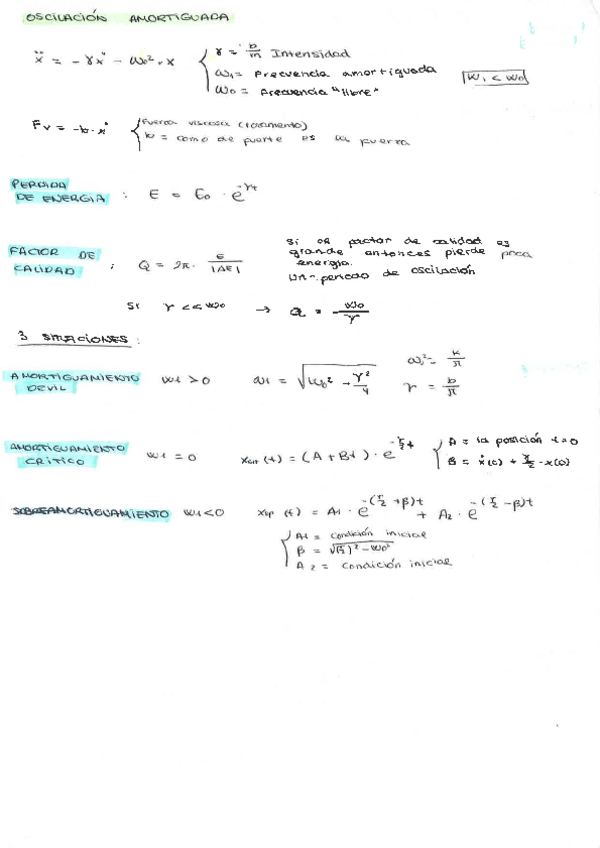 OSCILACIÓN AMORTIGUADA
ẍ = - γẋ - ω₀² · x { γ = b/m Intensidad
ω₁ = Frecuencia amortiguada
ω₀ = Frecuencia "libre"
ω₁ < ω₀
Fv = -b · ẋ { Fuerza viscosa (rozamiento)
b = como de fuerte es la fuerza
PERDIDA
DE ENERGIA : E = E₀ · e^-γt
FACTOR DE
CALIDAD : Q = 2π · E/|ΔE|
Si el factor de calidad es
grande entonces pierde poca
energía.
un periodo de oscilación
Si γ << ω₀ → Q = ω₀/γ
3 SITUACIONES:
AMORTIGUAMIENTO
DEVIL ω₁ > 0 ω₁ = √(ω₀² - γ²/4)
γ = b/m
AMORTIGUAMIENTO
CRÍTICO ω₁ = 0 xcrt (t) = (A + Bt) · e^-γ/2 t { A = la posición t=0
B = ẋ(0) + γ/2 · x(0)
SOBREAMORTIGUAMIENTO ω₁<0 (t) = A₁ · e^-(γ/2 + β)t + A₂ · e^-(γ/2 - β)t
{ A₁ = condición inicial
β = √(γ/2)² - ω₀²
A₂ = condición inicial